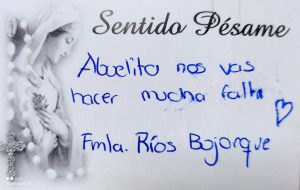 Sentido Pésame
Abuelito nos vas
hacer mucha falta
Fmla. Ríos Bojorque